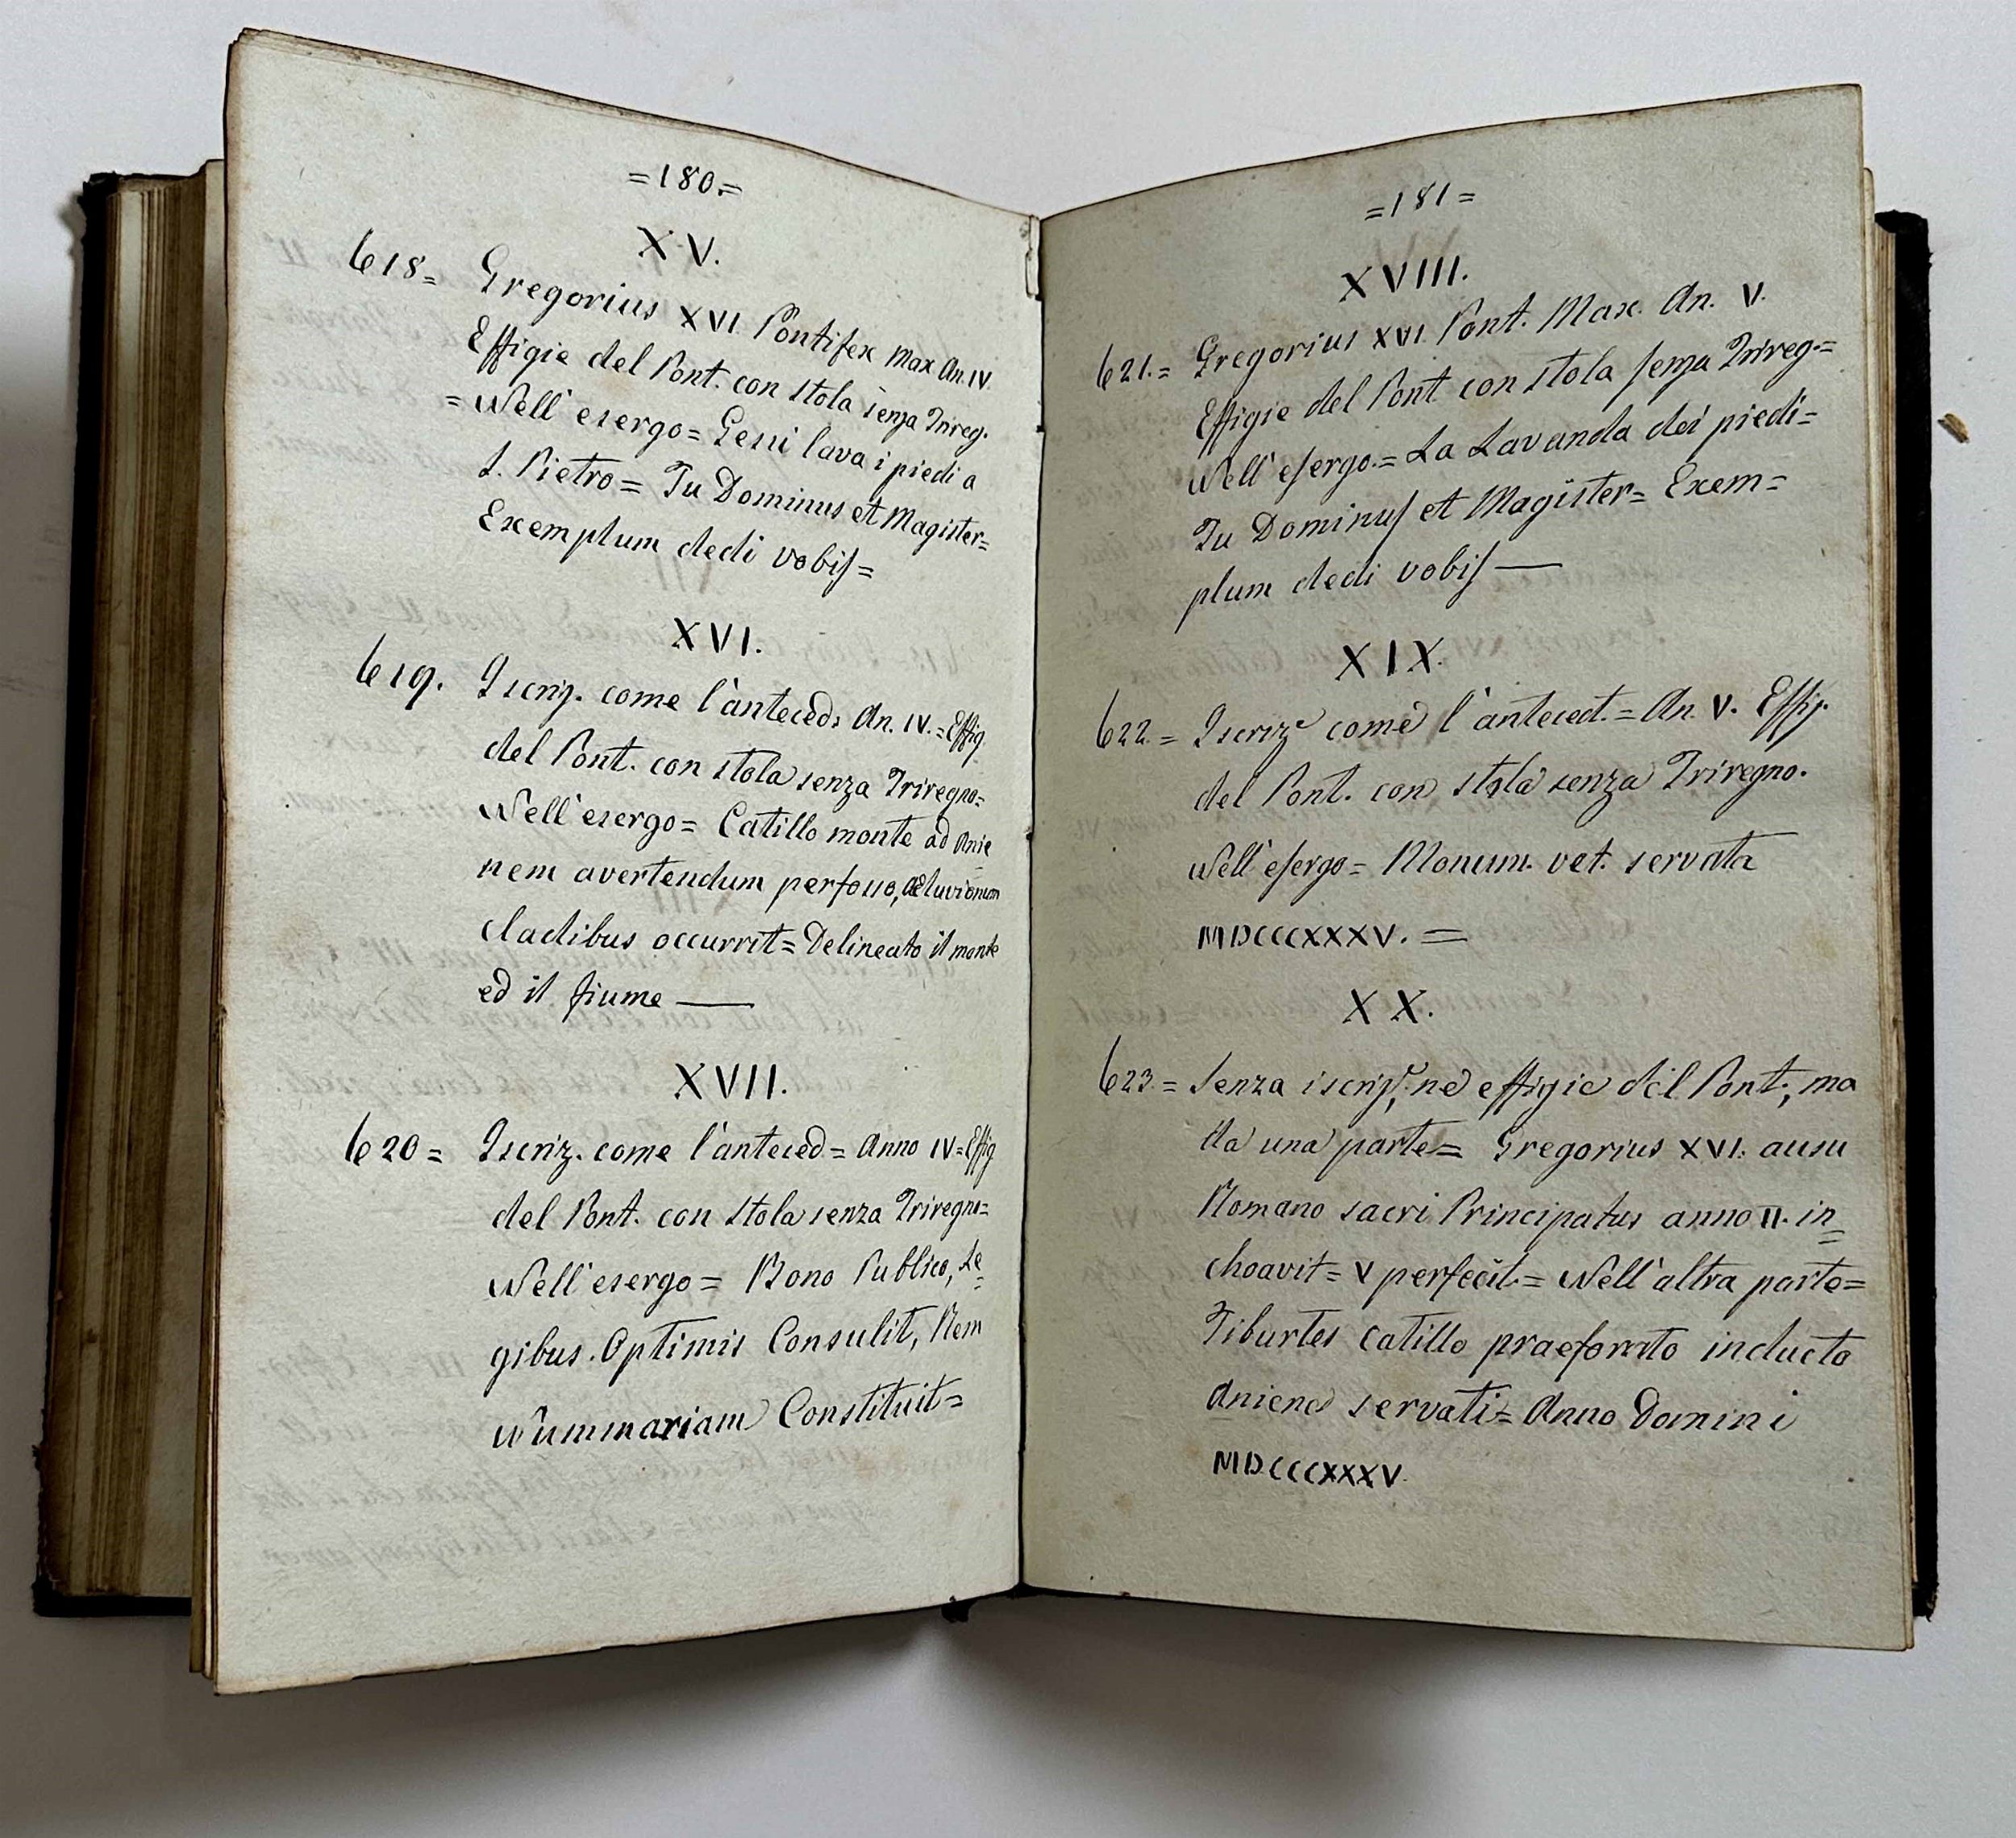 =180.=
XV.
618= Gregorius XVI Pontifex Max An. IV.
Effigie del Pont. con stola senza Trireg.
=Nell' esergo= Gesù lava i piedi a
S. Pietro= Tu Dominus et Magister=
Exemplum dedi vobis=
XVI.
619. Iscriz. come l'anteced: An. IV.= Effig
del Pont. con stola senza Triregno=
Nell'esergo= Catillo monte ad Anie
nem avertendum perfosso, aeluvionum
cladibus occurrit= Delineato il monte
ed il fiume —
XVII.
620= Iscriz. come l'anteced= Anno IV= Effig
del Pont. con Stola senza Triregno=
Nell'esergo= Bono Publico, Le=
gibus. Optimis Consulit, Rem
Nummariam Constituit=
=181=
XVIII.
621.= Gregorius XVI. Pont. Max. An. V.
Effigie del Pont con stola senza Trireg.=
Nell'esergo.= La Lavanda dei piedi=
Tu Dominus et Magister= Exem=
plum dedi vobis —
XIX.
622.= Iscrize come l'anteced.= An. V. Effig.
del Pont. con stola senza Triregno.
Nell'esergo= Monum. vet. servata
MDCCCXXXV. =
XX.
623.= Senza iscrize, nè effigie del Pont; ma
da una parte= Gregorius XVI. ausu
Romano sacri Principatus anno II. in=
choavit= V perfecit.= Nell'altra parte=
Tiburtes Catillo praeforato inducto
Aniene servati= Anno Domini
MDCCCXXXV.